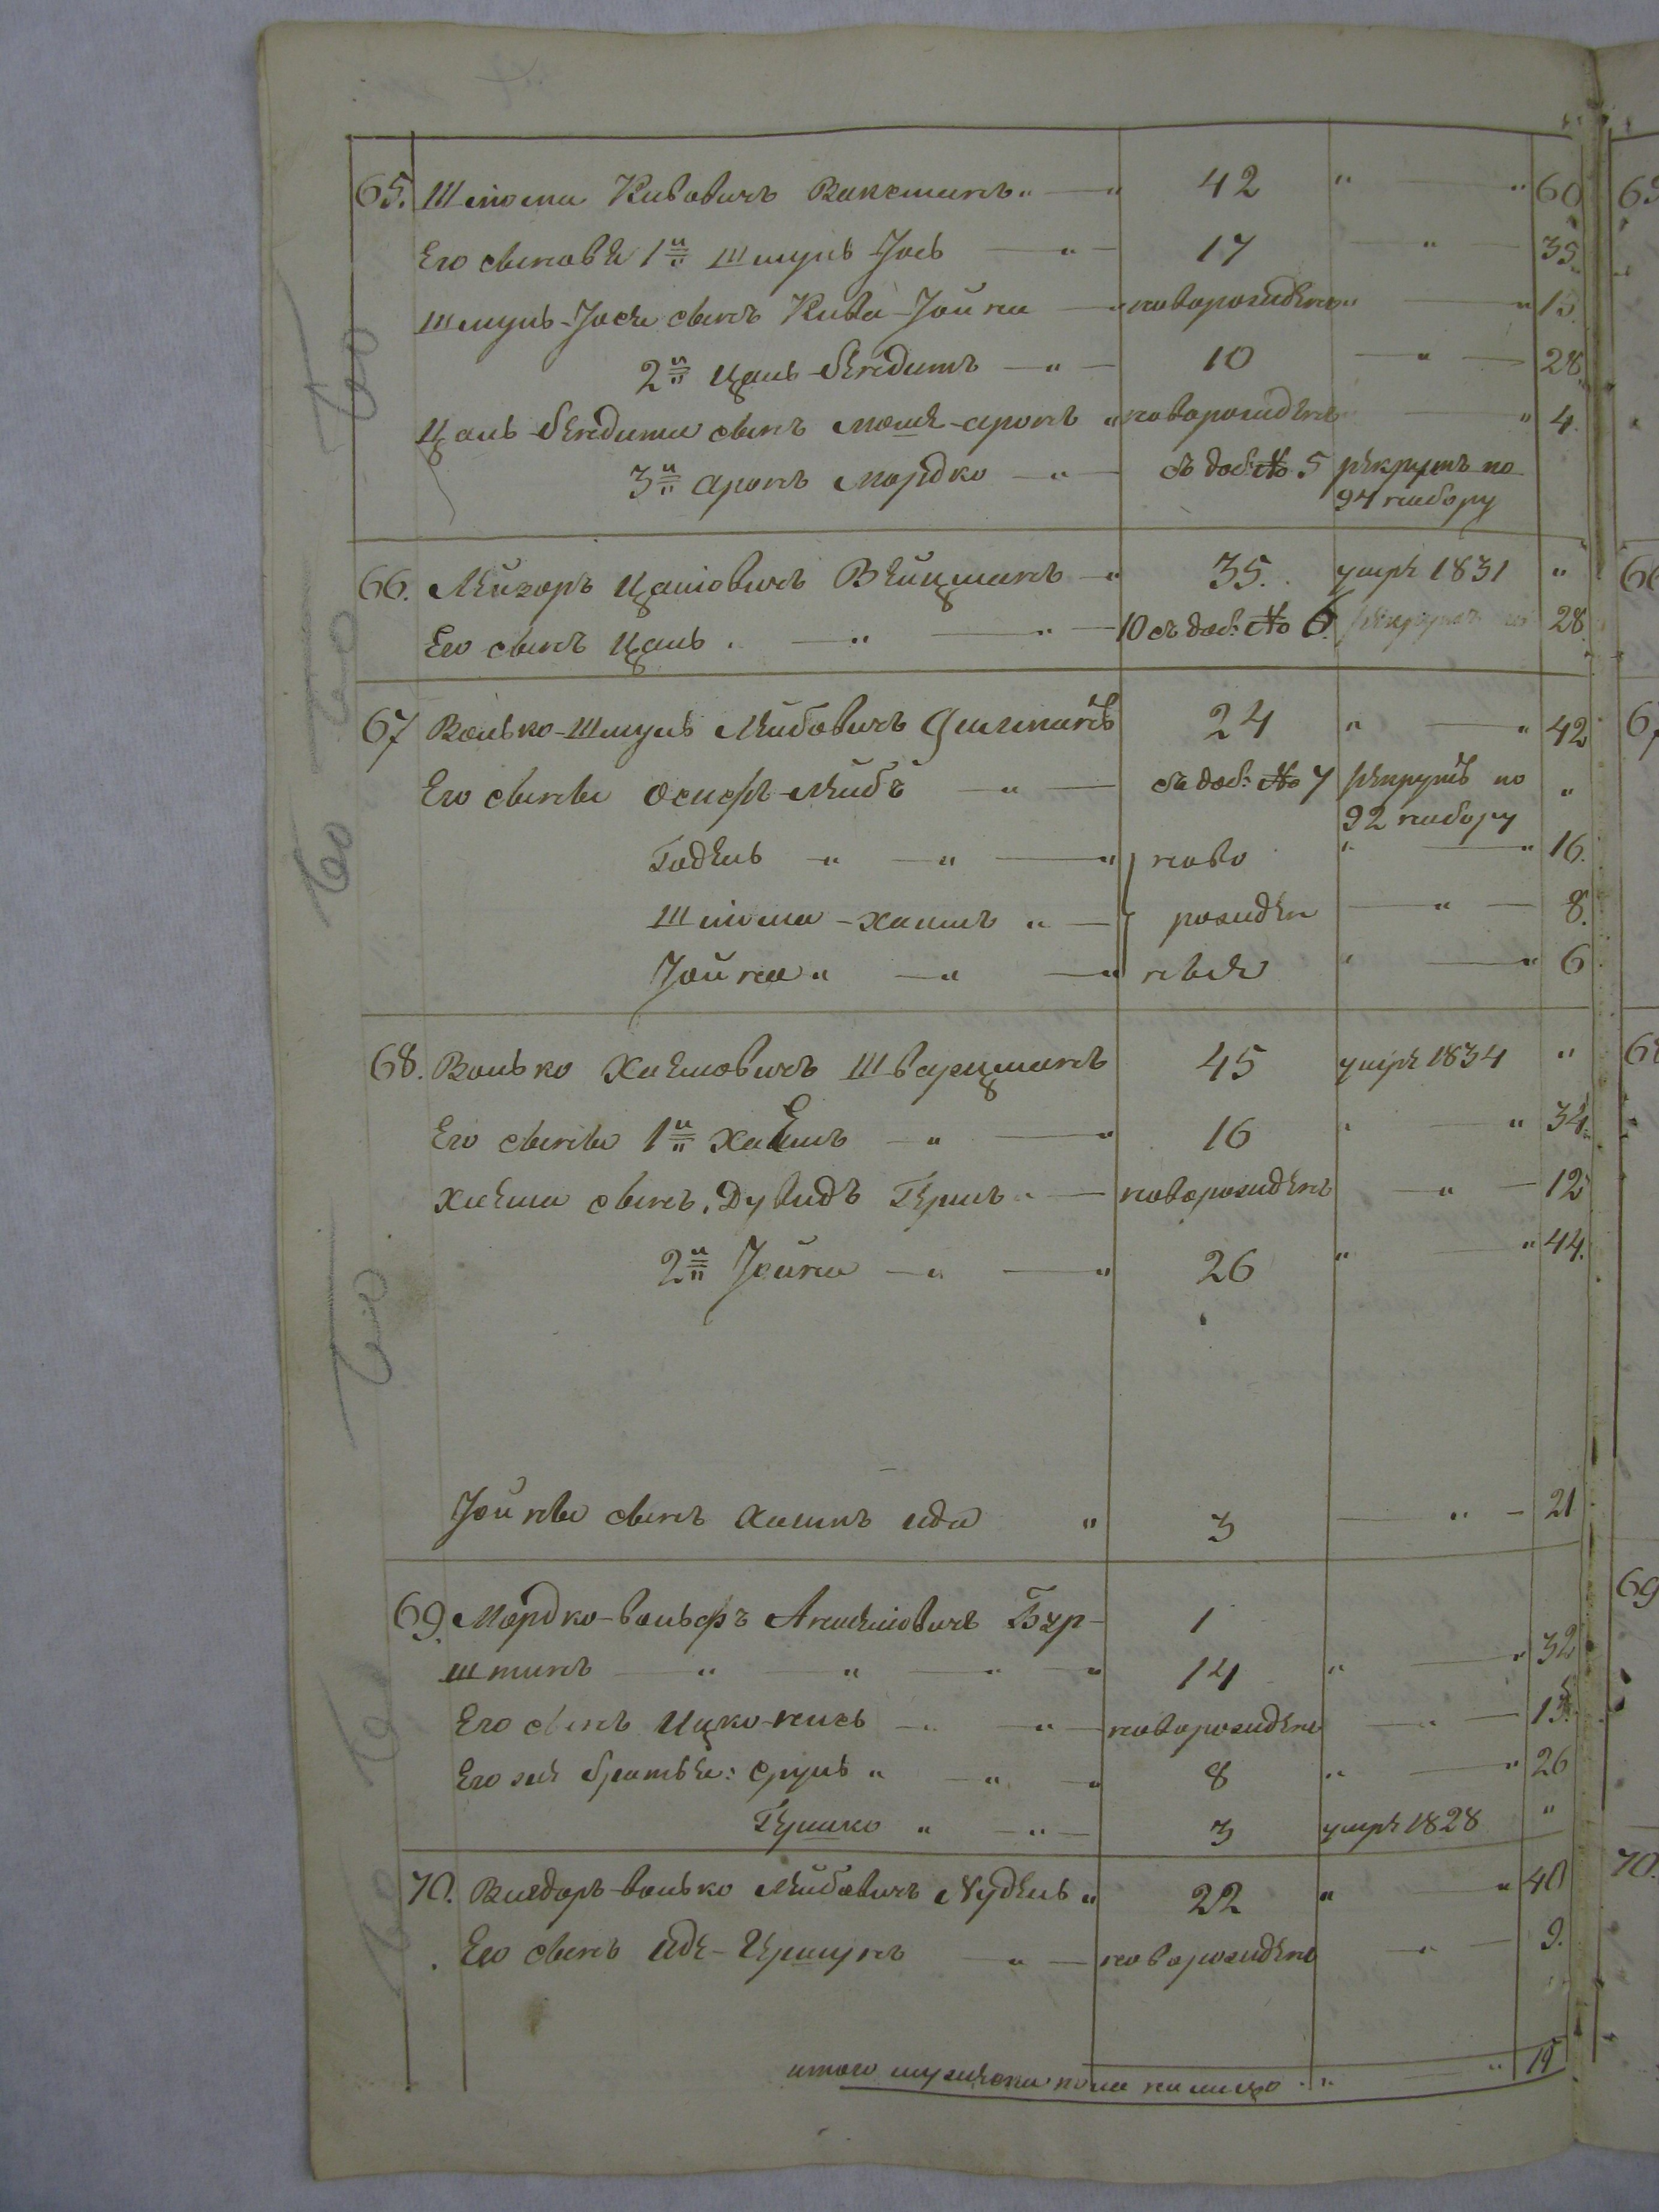 65. Шліома Кивовичъ Ваксманъ " — " 42 " — " 60
Его сыновья 1й Шмуль Іось — " — 17 — " — 35
Шмуль-Іося сынъ Кива-Іойна — " новорожденъ " — " 15
2й Цаль — " — 10 — " — 28
Цаль сынъ Мошк-Аронъ " новорожденъ — " 4.
3й Аронъ Мордко — " — съ доб: № 5 рекрутъ по
94 набору
66. Лейзоръ Цаліовичъ Вейцманъ — " 35. умре 1831 "
Его сынъ Цаль . — " — " — 10 съ доб: № 6. 28.
67 Волько-Шмуль Лейбовичъ 24 " — " 42
Его сыны Осифъ-Лейбъ — " — съ доб: № 7 рекрутъ по "
92 набору
Годель — " — " — " ново " — " 16.
Шліома-Хаимъ " — рожден — " — 8.
Іойна " — " — " ные " — " 6
68. Волько Хаемовичъ Шварцманъ 45 умре 1834 "
Его сыны 1й Хаемъ — " — " 16 " — " 34.
Хаема сынъ, Дувидъ Гершъ " — новорожденъ — " — 12
2й Іойна — " — " 26 " — " 44.
Іойны сынъ Хаимъ Ида " 3 — " — 21
69. Мордко-Вольфъ Аншеліовичъ Бур- 1
штинъ — " — " — " — " 14 " — " 32
Его сынъ Ицко — " — " — новорожденъ — " — 15.
Его же братья: Сруль " — " — " 8 " — " 26
Гершко " — " — 3 умре 1828 "
70. Вигдоръ-Волько Лейбовичъ Нудель " 22 " — " 40
Его сынъ — " — новорожденъ — " — 9.
итого мужеска пола на лицо . " — " 19